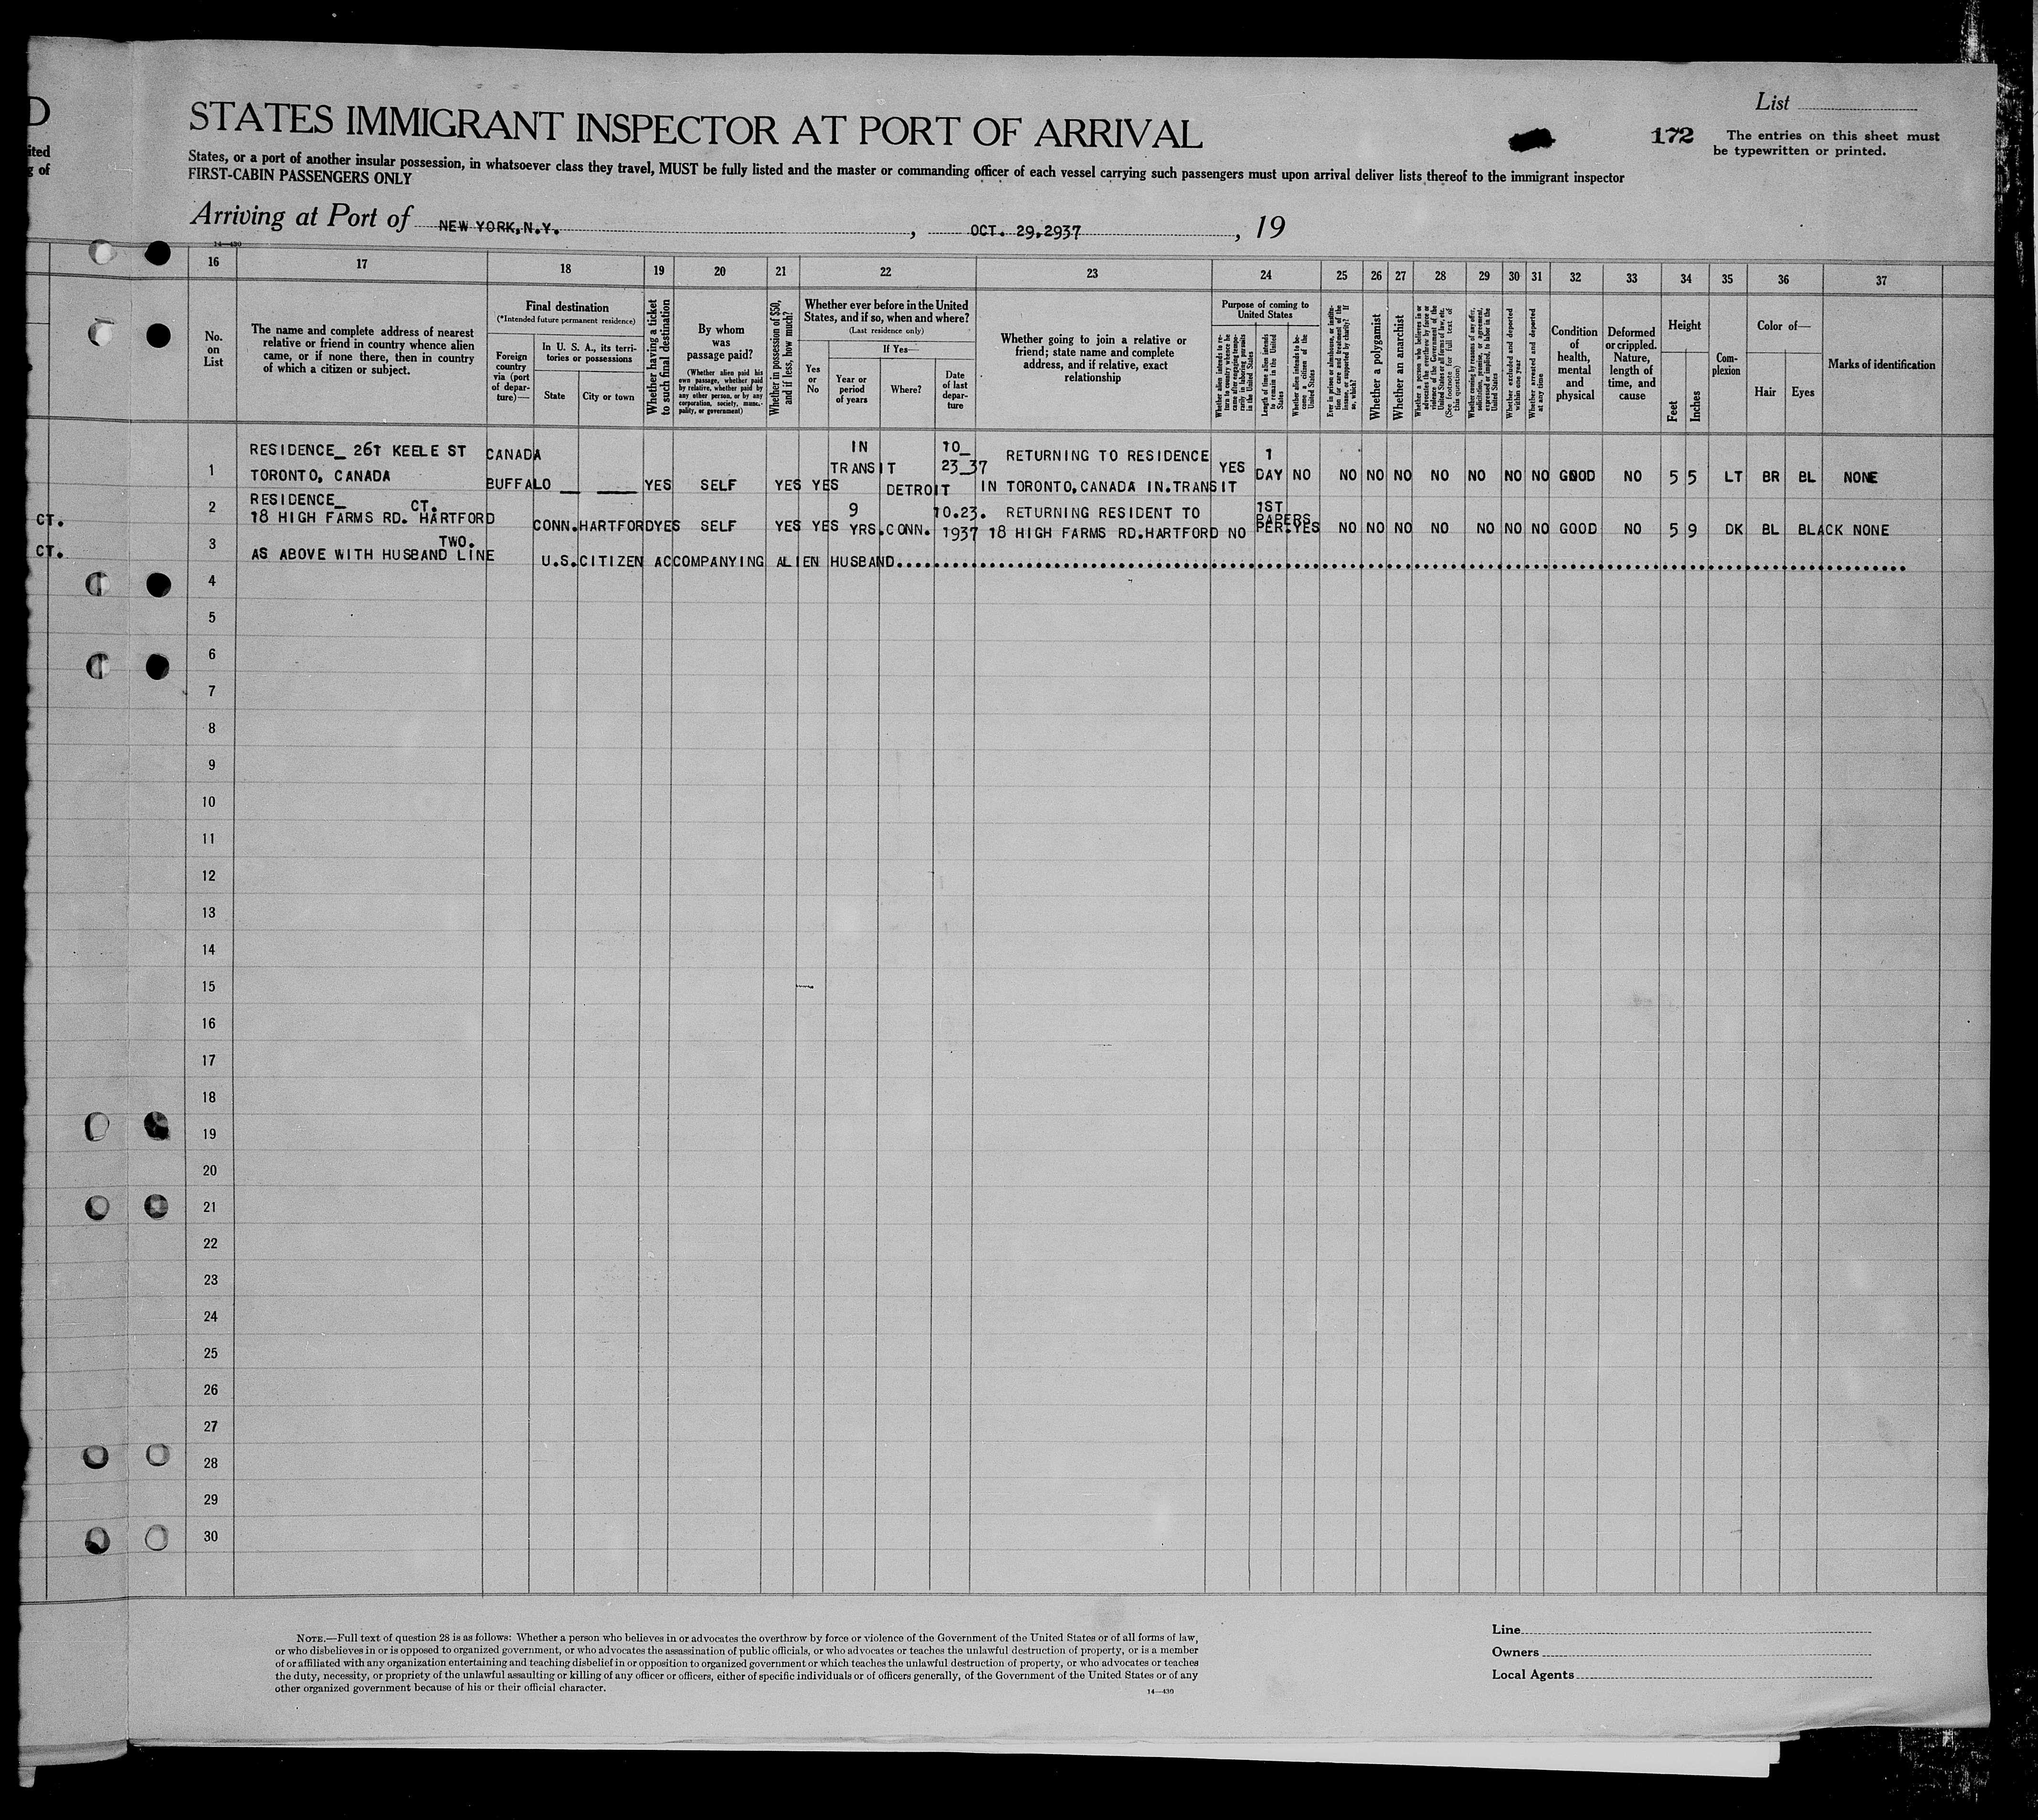 D
STATES IMMIGRANT INSPECTOR AT PORT OF ARRIVAL
List
172
The entries on this sheet must
be typewritten or printed.
ited
g of
States, or a port of another insular possession, in whatsoever class they travel, MUST be fully listed and the master or commanding officer of each vessel carrying such passengers must upon arrival deliver lists thereof to the immigrant inspector
FIRST-CABIN PASSENGERS ONLY
Arriving at Port of NEW YORK, N.Y. , OCT. 29,2937 , 19
14—430
16 17 18 19 20 21 22 23 24 25 26 27 28 29 30 31 32 33 34 35 36 37
No.
on
List
The name and complete address of nearest
relative or friend in country whence alien
came, or if none there, then in country
of which a citizen or subject.
Final destination
(*Intended future permanent residence)
Foreign
country
via (port
of depar-
ture)—
In U. S. A., its terri-
tories or possessions
State
City or town
Whether having a ticket
to such final destination
By whom
was
passage paid?
(Whether alien paid his
own passage, whether paid
by relative, whether paid by
any other person, or by any
corporation, society, munic-
ipality, or government)
Whether in possession of $50,
and if less, how much?
Whether ever before in the United
States, and if so, when and where?
(Last residence only)
Yes
or
No
If Yes—
Year or
period
of years
Where?
Date
of last
depar-
ture
Whether going to join a relative or
friend; state name and complete
address, and if relative, exact
relationship
Purpose of coming to
United States
Whether alien intends to re-
turn to country whence he
came after engaging tempo-
rarily in laboring pursuits
in the United States
Length of time alien intends
to remain in the United
States
Whether alien intends to be-
come a citizen of the
United States
Ever in prison or almshouse, or institu-
tion for care and treatment of the
insane, or supported by charity? If
so, which?
Whether a polygamist
Whether an anarchist
Whether a person who believes in or
advocates the overthrow by force or
violence of the Government of the
United States or all forms of law, etc.
(See footnote for full text of
this question)
Whether coming by reason of any offer,
solicitation, promise, or agreement,
expressed or implied, to labor in the
United States
Whether excluded and deported
within one year
Whether arrested and deported
at any time
Condition
of
health,
mental
and
physical
Deformed
or crippled.
Nature,
length of
time, and
cause
Height
Feet
Inches
Com-
plexion
Color of—
Hair
Eyes
Marks of identification
RESIDENCE_ 261 KEELE ST CANADA IN 10_ RETURNING TO RESIDENCE 1
1 TORONTO, CANADA TRANSIT 23_37 YES DAY NO NO NO NO NO NO NO NO GOOD NO 5 5 LT BR BL NONE
BUFFALO __ ____ YES SELF YES YES DETROIT IN TORONTO,CANADA IN.TRANSIT
RESIDENCE_ CT. 9 10.23. RETURNING RESIDENT TO 1ST
2 PAPERS
CT. 18 HIGH FARMS RD. HARTFORD CONN.HARTFORD YES SELF YES YES YRS.CONN. 1937 18 HIGH FARMS RD.HARTFORD NO PER.YES NO NO NO NO NO NO NO GOOD NO 5 9 DK BL BLACK NONE
3 TWO.
CT. AS ABOVE WITH HUSBAND LINE U.S.CITIZEN ACCOMPANYING ALIEN HUSBAND....................
4
5
6
7
8
9
10
11
12
13
14
15
16
17
18
19
20
21
22
23
24
25
26
27
28
29
30
NOTE.—Full text of question 28 is as follows: Whether a person who believes in or advocates the overthrow by force or violence of the Government of the United States or of all forms of law,
or who disbelieves in or is opposed to organized government, or who advocates the assassination of public officials, or who advocates or teaches the unlawful destruction of property, or is a member
of or affiliated with any organization entertaining and teaching disbelief in or opposition to organized government or which teaches the unlawful destruction of property, or who advocates or teaches
the duty, necessity, or propriety of the unlawful assaulting or killing of any officer or officers, either of specific individuals or of officers generally, of the Government of the United States or of any
other organized government because of his or their official character.
14—430
Line
Owners
Local Agents